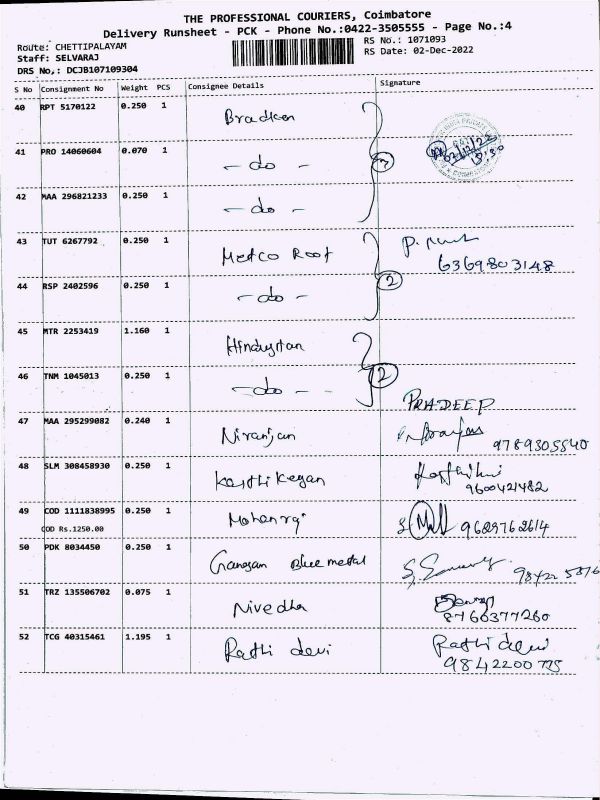 THE PROFESSIONAL COURIERS, Coimbatore
Delivery Runsheet - PCK - Phone No.:0422-3505555 - Page No.:4
Route: CHETTIPALAYAM
RS No.: 1071093
Staff: SELVARAJ
RS Date: 02-Dec-2022
DRS No,: DCJB107109304
S No Consignment No Weight PCS Consignee Details Signature
40 RPT 5170122 0.250 1 Bradken
41 PRO 14060604 0.070 1 - do - 3
42 MAA 296821233 0.250 1 - do -
43 TUT 6267792 0.250 1 Metco Roof
6369803148
44 RSP 2402596 0.250 1 - do - 2
45 MTR 2253419 1.160 1 Hindustan
46 TNM 1045013 0.250 1 - do - - 2
PRADEEP
47 MAA 295299082 0.240 1 Niranjan
9789305540
48 SLM 308458930 0.250 1 Karthikeyan
9600421482
49 COD 1111838995 0.250 1 Mohanraj 9629762614
COD Rs.1250.00
50 PDK 8034450 0.250 1 Ganesan Blue metal
51 TRZ 135506702 0.075 1 Nivedha
8760377260
52 TCG 40315461 1.195 1 Rathi devi Rathi devi
9842200775